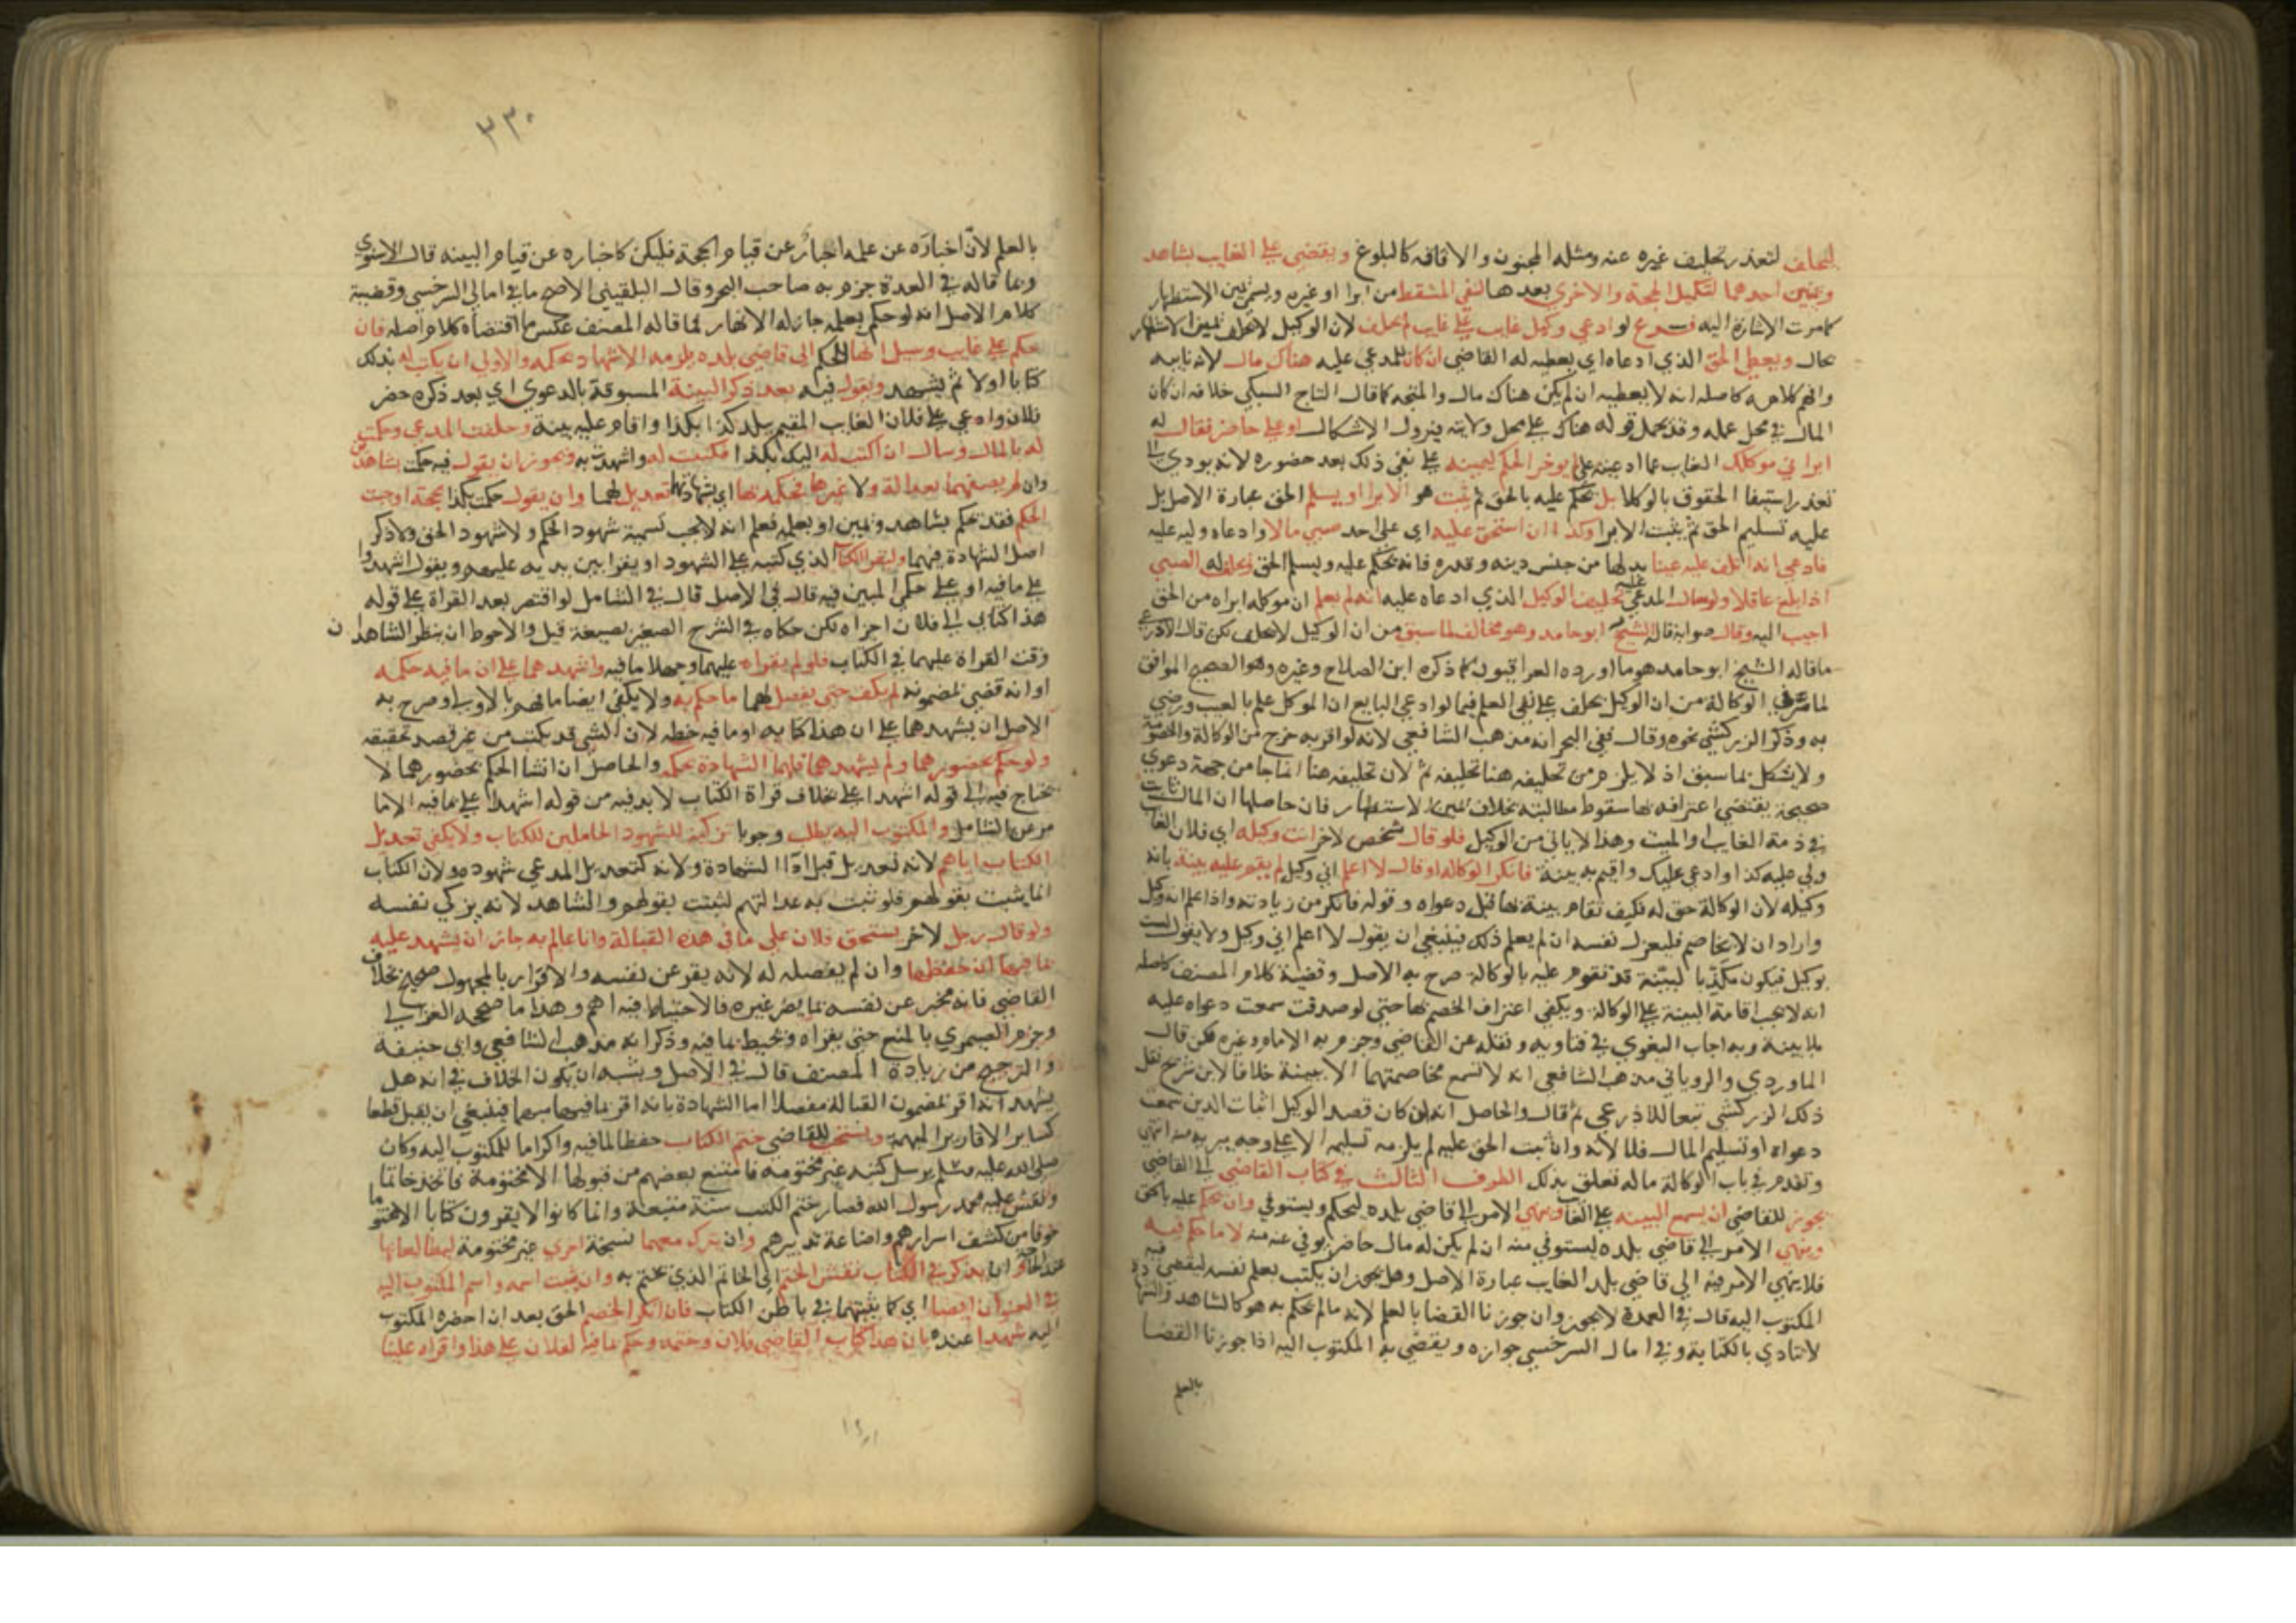 ليحلف لتعذر تحليف غيره عنه ومثله المجنون والافاقة كالبلوغ ويقضي على الغايب بشاهد
ويمين احدهما لتكميل الحجة والاخرى بعدها لنفي المسقط من ابرا او غيره ويسمى يمين الاستظهار
كما مرت الاشارة اليه فرع لو ادعى وكيل غايب على غايب لم يحلف لان الوكيل لا يحلف يمين الاستظهار
بحال ويعطى الحق الذي ادعاه اي يعطيه له القاضي ان كان للمدعى عليه هناك مال لانه نايبه
وافهم كلامه كاصله انه لا يعطيه ان لم يكن هناك مال والمتجه كما قال التاج السبكي خلافه ان كان
المال في محل عمله وقد يحمل قوله هناك على محل ولايته فيزول الاشكال او على حاضر فقال له
ابراني موكلك الغايب عما ادعيته علي لم يوخر الحكم ليمينه على نفي ذلك بعد حضوره لانه يودي الى
تعذر استيفا الحقوق بالوكلا بل يحكم عليه بالحق ثم يثبت هو الابرا او يسلم الحق عبارة الاصل بل
عليه تسليم الحق ثم يثبت الابرا وكذا ان استحق عليه اي على احد صبي مالا وادعاه وليه عليه
فادعى انه اتلف عليه عينا بدلها من جنس دينه وقدره فانه يحكم عليه ويسلم الحق ويحلف له الصبي
اذا بلغ عاقلا ولو سال المدعى عليه تحليف الوكيل الذي ادعاه عليه انه لم يعلم ان موكله ابراه من الحق
اجيب اليه وقال صوابه قاله الشيخ ابو حامد وهو مخالف لما سبق من ان الوكيل لا يحلف لكن قال الاذرعي
ما قاله الشيخ ابو حامد هو ما اورده العراقيون كما ذكره ابن الصلاح وغيره وهو الصحيح الموافق
لما مر في الوكالة من ان الوكيل يحلف على نفي العلم فيما لو ادعى البايع ان الموكل علم بالعيب ورضي
به وذكر الزركشي نحوه وقال ففي البحر انه مذهب الشافعي لانه لو اقر به خرج من الوكالة والخصومة
ولا يشكل بما سبق اذ لا يلزم من تحليفه هنا تحليفه ثم لان تحليفه هنا انما جا من جهة دعوى
صحيحة يقتضي اعترافه بها سقوط مطالبته بخلاف يمين الاستظهار فان حاصلها ان المال ثابت
في ذمة الغايب او الميت وهذا لا ياتي من الوكيل فلو قال شخص لاخر انت وكيله اي فلان الغايب
ولي عليه كذا وادعي عليك واقيم به بينة فانكر الوكالة او قال لا اعلم اني وكيل لم يقم عليه بينة بانه
وكيله لان الوكالة حق له فكيف تقام بينة بها قبل دعواه وقوله فانكر من زيادته واذا علم انه وكيل
واراد ان لا يخاصم فليعزل نفسه ان لم يعلم ذلك فينبغي ان يقول لا اعلم اني وكيل ولا يقول لست
بوكيل فيكون مكذبا لبينة قد تقوم عليه بالوكالة صرح به الاصل وقضية كلام المصنف كاصله
انه لا يجب اقامة البينة على الوكالة ويكفي اعتراف الخصم بها حتى لو صدقت سمعت دعواه عليه
بلا بينة وبه اجاب البغوي في فتاويه ونقله عن القاضي وجزم به الامام وغيره لكن قال
الماوردي والروياني مذهب الشافعي انه لا تسمع مخاصمتهما الا ببينة خلافا لابن شريح نقل
ذلك الزركشي تبعا للاذرعي ثم قال والحاصل انه ان كان قصد الوكيل اثبات الدين سمعت
دعواه او تسليم المال فلا لانه وان ثبت الحق عليه لم يلزمه تسليمه الا على وجه يبريه منه انتهى
وتقدم في باب الوكالة ماله تعلق بذلك الطرف الثالث في كتاب القاضي الى القاضي
يجوز للقاضي ان يسمع البينة على الغايب وينهي الامر الى قاضي بلده ليحكم ويستوفي وان يحكم عليه بالحق
وينهي الامر الى قاضي بلده ليستوفي منه ان لم يكن له مال حاضر يوفي عنه منه لا ما حكم فيه
فلا ينهي الامر فيه الى قاضي بلد الغايب عبارة الاصل وهل يجوز ان يكتب بعلم نفسه ليقضي به
المكتوب اليه قال في العدة لا يجوز وان جوزنا القضا بالعلم لانه ما لم يحكم به هو كالشاهد والشهادة
لا تتادى بالكتابة وفي امالي السرخسي جوازه ويقضي به المكتوب اليه اذا جوزنا القضا
بالعلم
٣٣٠
بالعلم لان اخباره عن علمه اخبار عن قيام الحجة فليكن كاخباره عن قيام البينة قال الاسنوي
وبما قاله في العدة جزم به صاحب البحر وقال البلقيني الاصح ما في امالي السرخسي وقضية
كلام الاصل انه لو حكم بعلمه جاز له الانهاء لما قاله المصنف عكس ما اقتضاه كلام اصله فان
حكم على غايب وسئل انهاء الحكم الى قاضي بلده يلزمه الاشهاد بحكمه والاولى ان يكتب له بذلك
كتابا اولا ثم يشهد ويقول فيه بعد ذكر البينة المسبوقة بالدعوى اي بعد ذكره حضر
فلان وادعى على فلان الغايب المقيم ببلد كذا بكذا واقام عليه بينة وحلفت المدعي وحكمت
له بالمال وسال ان اكتب له اليك بكذا فكتبت له واشهدت به ويجوز ان يقول فيه حكمت بشاهدين
وان لم يصفهما بعدالة ولا غيرها فحكمه بها اي بشهادتهما تعديل لهما وان يقول حكمت بكذا بحجة اوجبت
الحكم فقد يحكم بشاهد ويمين او بعلمه فعلم انه لا يجب تسمية شهود الحكم ولا شهود الحق ولا ذكر
اصل الشهادة فيهما وليقرا الكتاب الذي كتبه على الشهود او يقرا بين يديه عليهم ويقول اشهدوا
على ما فيه او على حكمي المبين فيه قال في الاصل قال في الشامل لو اقتصر بعد القراة على قوله
هذا كتابي الى فلان اجزاه لكن حكاه في الشرح الصغير بصيغة قيل والاحوط ان ينظر الشاهدان
وقت القراة عليهما في الكتاب فلو لم يقراه عليهما وجهلا ما فيه واشهدهما على ان ما فيه حكمه
او انه قضى بمضمونه لم يكف حتى يفصل لهما ما حكم به ولا يكفي ايضا ما فهم بالاولى وصرح به
الاصل ان يشهدهما على ان هذا كتابه او ما فيه خطه لان الشي قد يكتب من غير قصد تحقيقه
ولو حكم بحضورهما ولم يشهدهما فلهما الشهادة بحكمه والحاصل ان انشا الحكم بحضورهما لا
يحتاج فيه الى قوله اشهدا علي بخلاف قراة الكتاب لا بد فيه من قوله اشهدا علي بما فيه الا ما
مر عن الشامل والمكتوب اليه يطلب وجوبا تزكية للشهود الحاملين للكتاب ولا يكفي تعديل
الكتاب اياهم لانه تعديل قبل ادا الشهادة ولانه كتعديل المدعي شهوده ولان الكتاب
انما يثبت بقولهم فلو ثبت به عدالتهم لثبتت بقولهم والشاهد لا يزكي نفسه
ولو قال رجل لاخر يستحق فلان علي ما في هذه القبالة وانا عالم به جاز ان يشهد عليه
بما فيها ان حفظها وان لم يفصله له لانه يقر عن نفسه والاقرار بالمجهول صحيح بخلاف
القاضي فانه مخبر عن نفسه بما يضر غيره فالاحتياط فيه اهم وهذا ما صححه الغزالي
وجزم الصيمري بالمنع حتى يقراه ويحيط بما فيه وذكر انه مذهب الشافعي وابي حنيفة
والترجيح من زيادة المصنف قال في الاصل ويشبه ان يكون الخلاف في انه هل
يشهد انه اقر بمضمون القبالة مفصلا اما الشهادة بانه اقر بما فيها مبهما فينبغي ان يقبل قطعا
كساير الاقارير المبهمة ويستحب للقاضي ختم الكتاب حفظا لما فيه واكراما للمكتوب اليه وكان
صلى الله عليه وسلم يرسل كتبه غير مختومة فامتنع بعضهم من قبولها الا مختومة فاتخذ خاتما
ونقش عليه محمد رسول الله فصار ختم الكتب سنة متبعة وانما كانوا لا يقرون كتابا الا مختوما
خوفا من كشف اسرارهم واضاعة تدبيرهم وان يترك معهما نسخة اخرى غير مختومة ليطالعاها
عند الحاجة وان يذكر في الكتاب نقش الختم اي الخاتم الذي يختم به وان يثبت اسمه واسم المكتوب اليه
في العنوان ايضا اي كما يثبتهما في باطن الكتاب فان انكر الخصم الحق بعد ان احضره المكتوب
اليه شهدا عنده بان هذا كتاب القاضي فلان وختمه وحكم بما فيه لفلان على هذا واقراه علينا